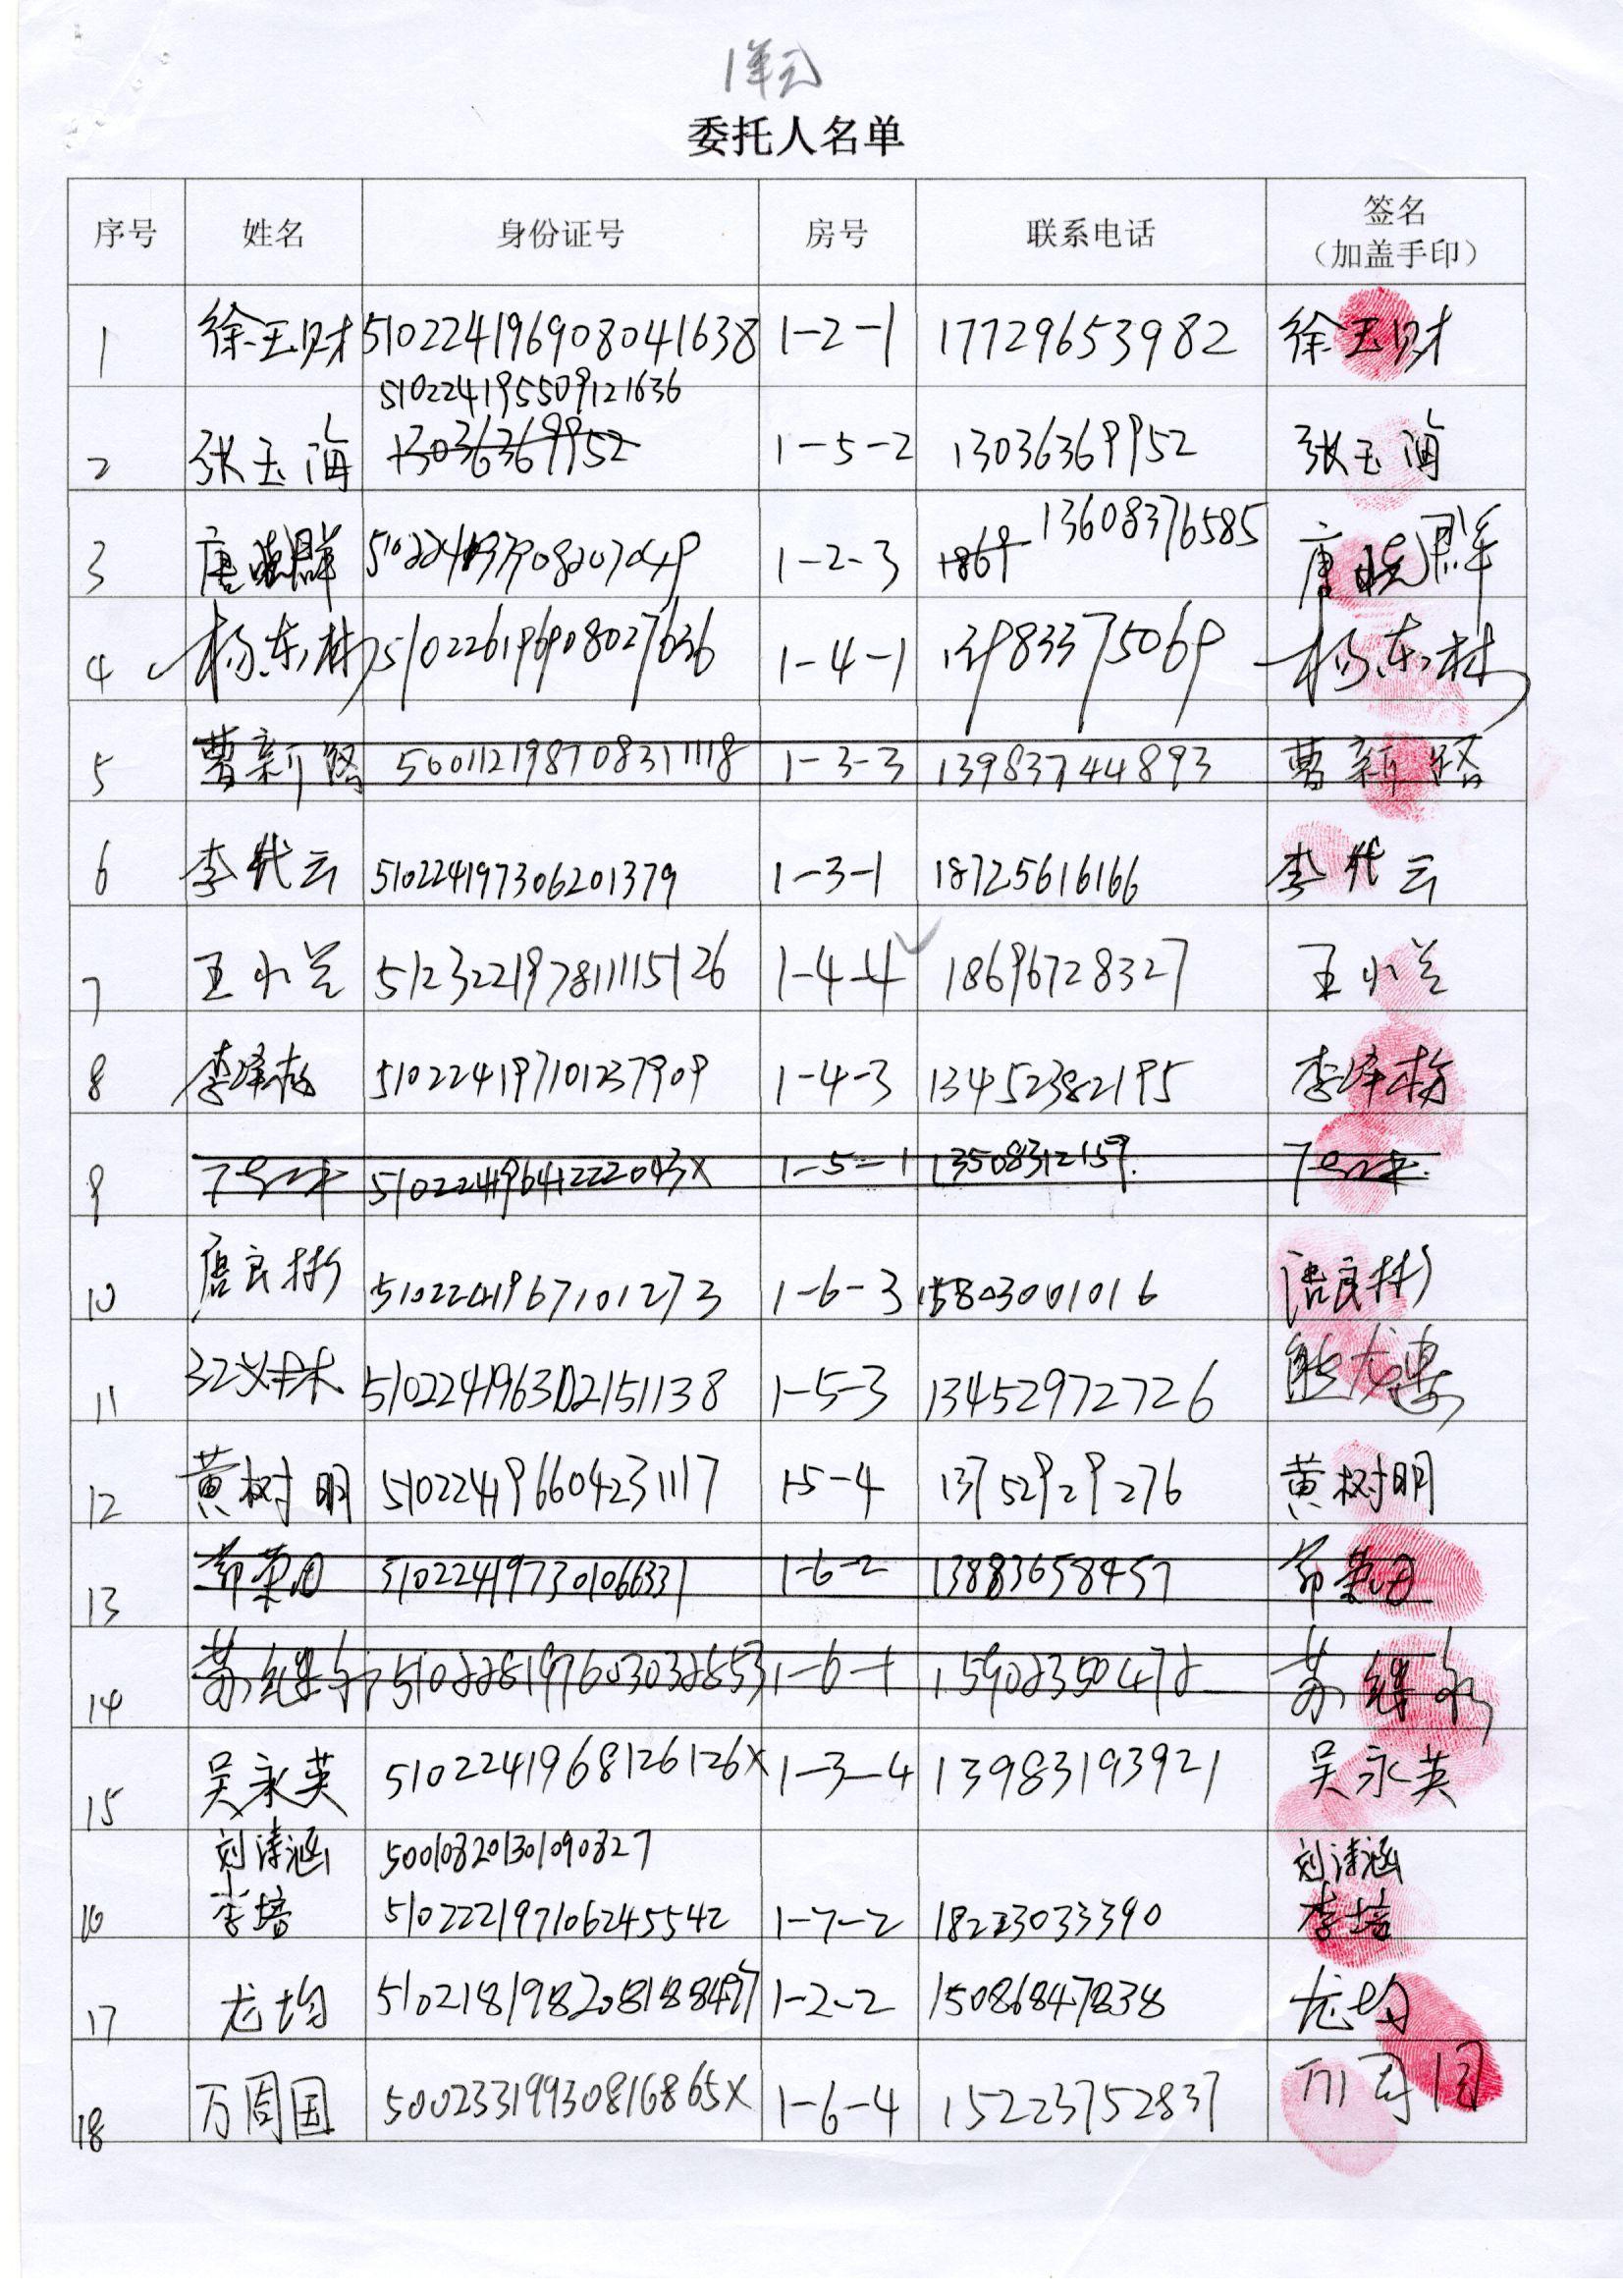 1单元
委托人名单
序号 姓名 身份证号 房号 联系电话 签名（加盖手印）
1 徐玉财 510224196908041638 1-2-1 17729653982 徐玉财
510224195509121636
2 张玉海 13036369952 1-5-2 13036369952 张玉海
3 唐晓群 1-2-3 1869 13608376585 唐晓群
4 杨东林 510226196908027636 1-4-1 13983375069 杨东林
5 曹新路 500112198708311118 1-3-3 13983744893 曹新路
6 李代云 510224197306201379 1-3-1 18725616166 李代云
7 王小兰 512322197811115126 1-4-4 18696728327 王小兰
8 李泽梅 510224197101237909 1-4-3 13452382195 李泽梅
9 51022419641222043X 1-5-1 13508312157
10 唐良彬 5102241967101273 1-6-3 15803001016 唐良彬
11 510224196302151138 1-5-3 13452972726
12 黄树明 510224196604231117 1-5-4 13752929276 黄树明
13 510224197301066331 1-6-2 13883658457
14 510228197603032853 1-6-1 15902350472
15 吴永英 5102241968126126X 1-3-4 13983193921 吴永英
刘涛涵 500108201301090827 刘涛涵
16 李培 510222197106245542 1-7-2 18223033390 李培
17 龙均 510218198208188497 1-2-2 15086847838 龙均
18 万周国 50023319930816865X 1-6-4 15223752837 万周国